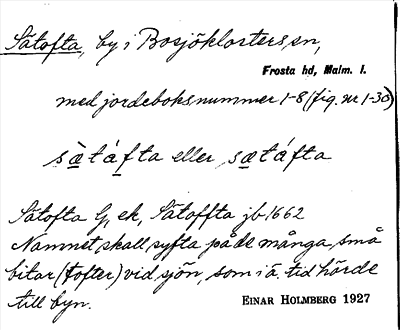 Sätofta, by i Bosjöklosters sn,
Frosta hd, Malm. l.
med jordeboksnummer 1-8 (fig. nr 1-30)
sætáfta eller sætáfta
Sätofta G, ek, Sätoffta jb 1662
Namnet skall syfta på de många små
bitar (tofter) vid sjön, som i ä. tid hörde
till byn.
EINAR HOLMBERG 1927